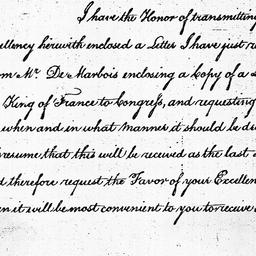 I have the Honor of transmitting
ellency herewith enclosed a Letter I have just re
om Mr. De Marbois enclosing a Copy of a L
King of France to Congress, and requesting
when and in what manner it should be de
resume that this will be received as the last
d therefore request the Favor of your Excellen
en it will be most convenient to you to receive